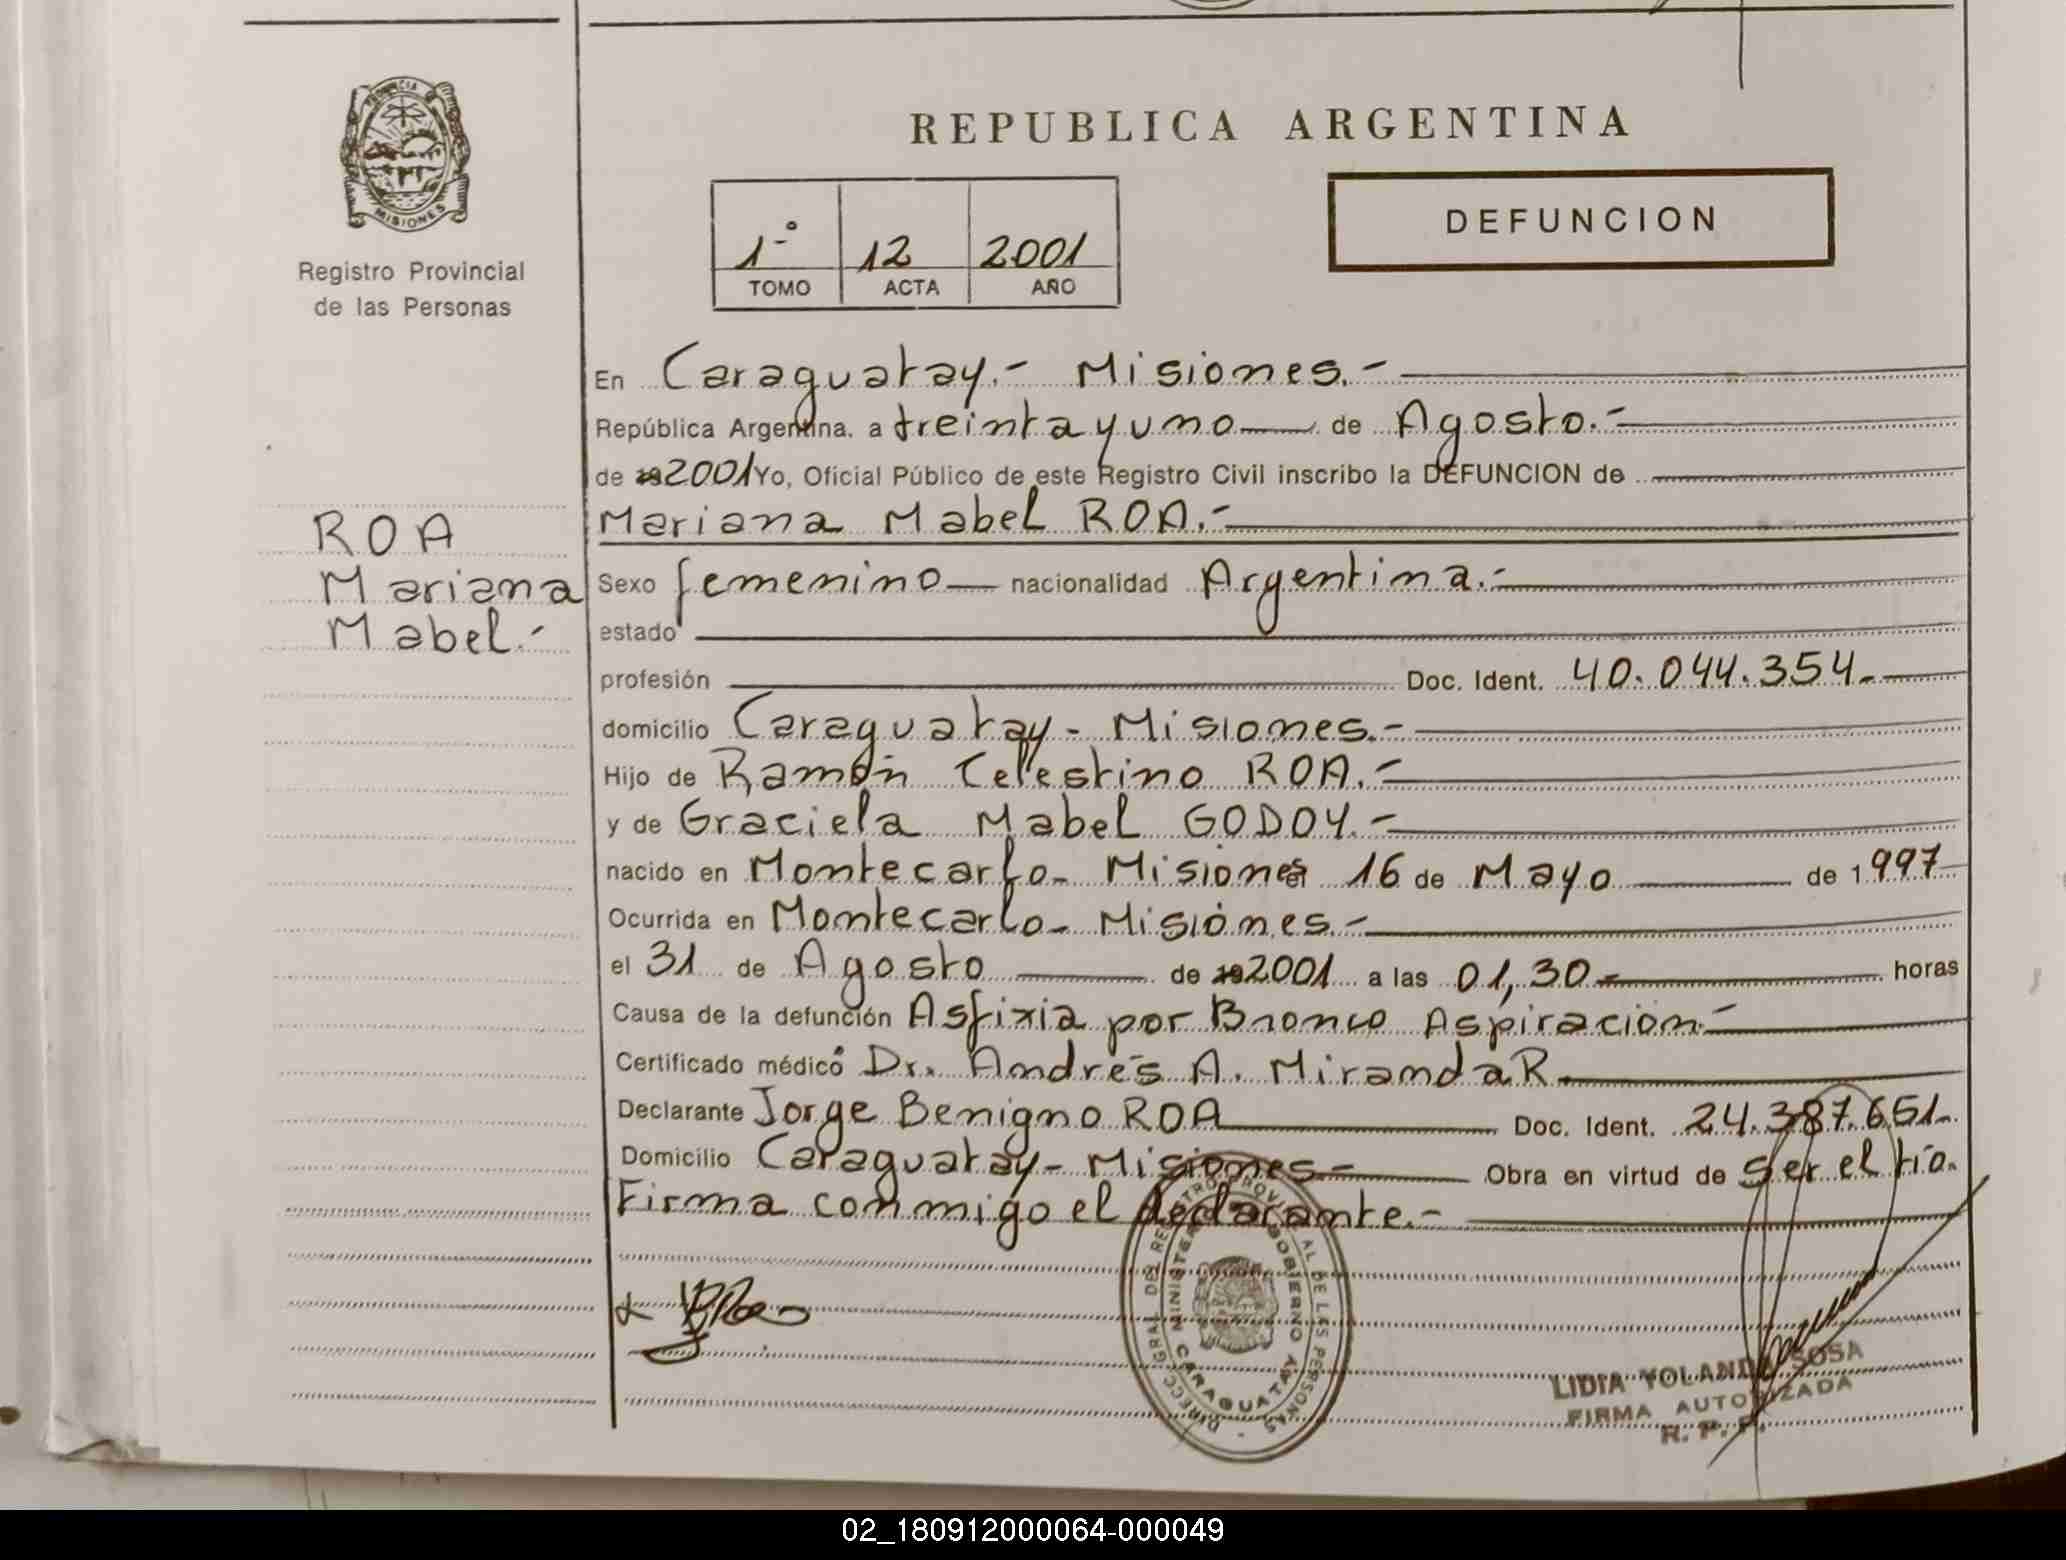 PROVINCIA DE
MISIONES
Registro Provincial
de las Personas
REPUBLICA ARGENTINA
1-º 12 2001
TOMO ACTA AÑO
DEFUNCION
En Caraguatay.- Misiones.-
República Argentina. a treinta y uno de Agosto.-
de 19 2001 Yo, Oficial Público de este Registro Civil inscribo la DEFUNCION de
Mariana Mabel ROA.-
ROA
Mariana
Mabel.-
Sexo femenino nacionalidad Argentina.-
estado
profesión Doc. Ident. 40.044.354.-
domicilio Caraguatay - Misiones.-
Hijo de Ramón Celestino ROA.-
y de Graciela Mabel GODOY.-
nacido en Montecarlo- Misiones el 16 de Mayo de 1997
Ocurrida en Montecarlo- Misiones.-
el 31 de Agosto de 19 2001 a las 01,30.- horas
Causa de la defunción Asfixia por Bronco Aspiración.-
Certificado médico Dr. Andrés A. Miranda R.
Declarante Jorge Benigno ROA Doc. Ident. 24.387.651.-
Domicilio Caraguatay- Misiones.- Obra en virtud de ser el tío.
Firma conmigo el declarante.-
DIRECC. GRAL. DEL REGISTRO PROVINCIAL DE LAS PERSONAS
MINISTERIO GOBIERNO
CARAGUATAY
LIDIA YOLANDA SOSA
FIRMA AUTORIZADA
R. P. P.
02_180912000064-000049